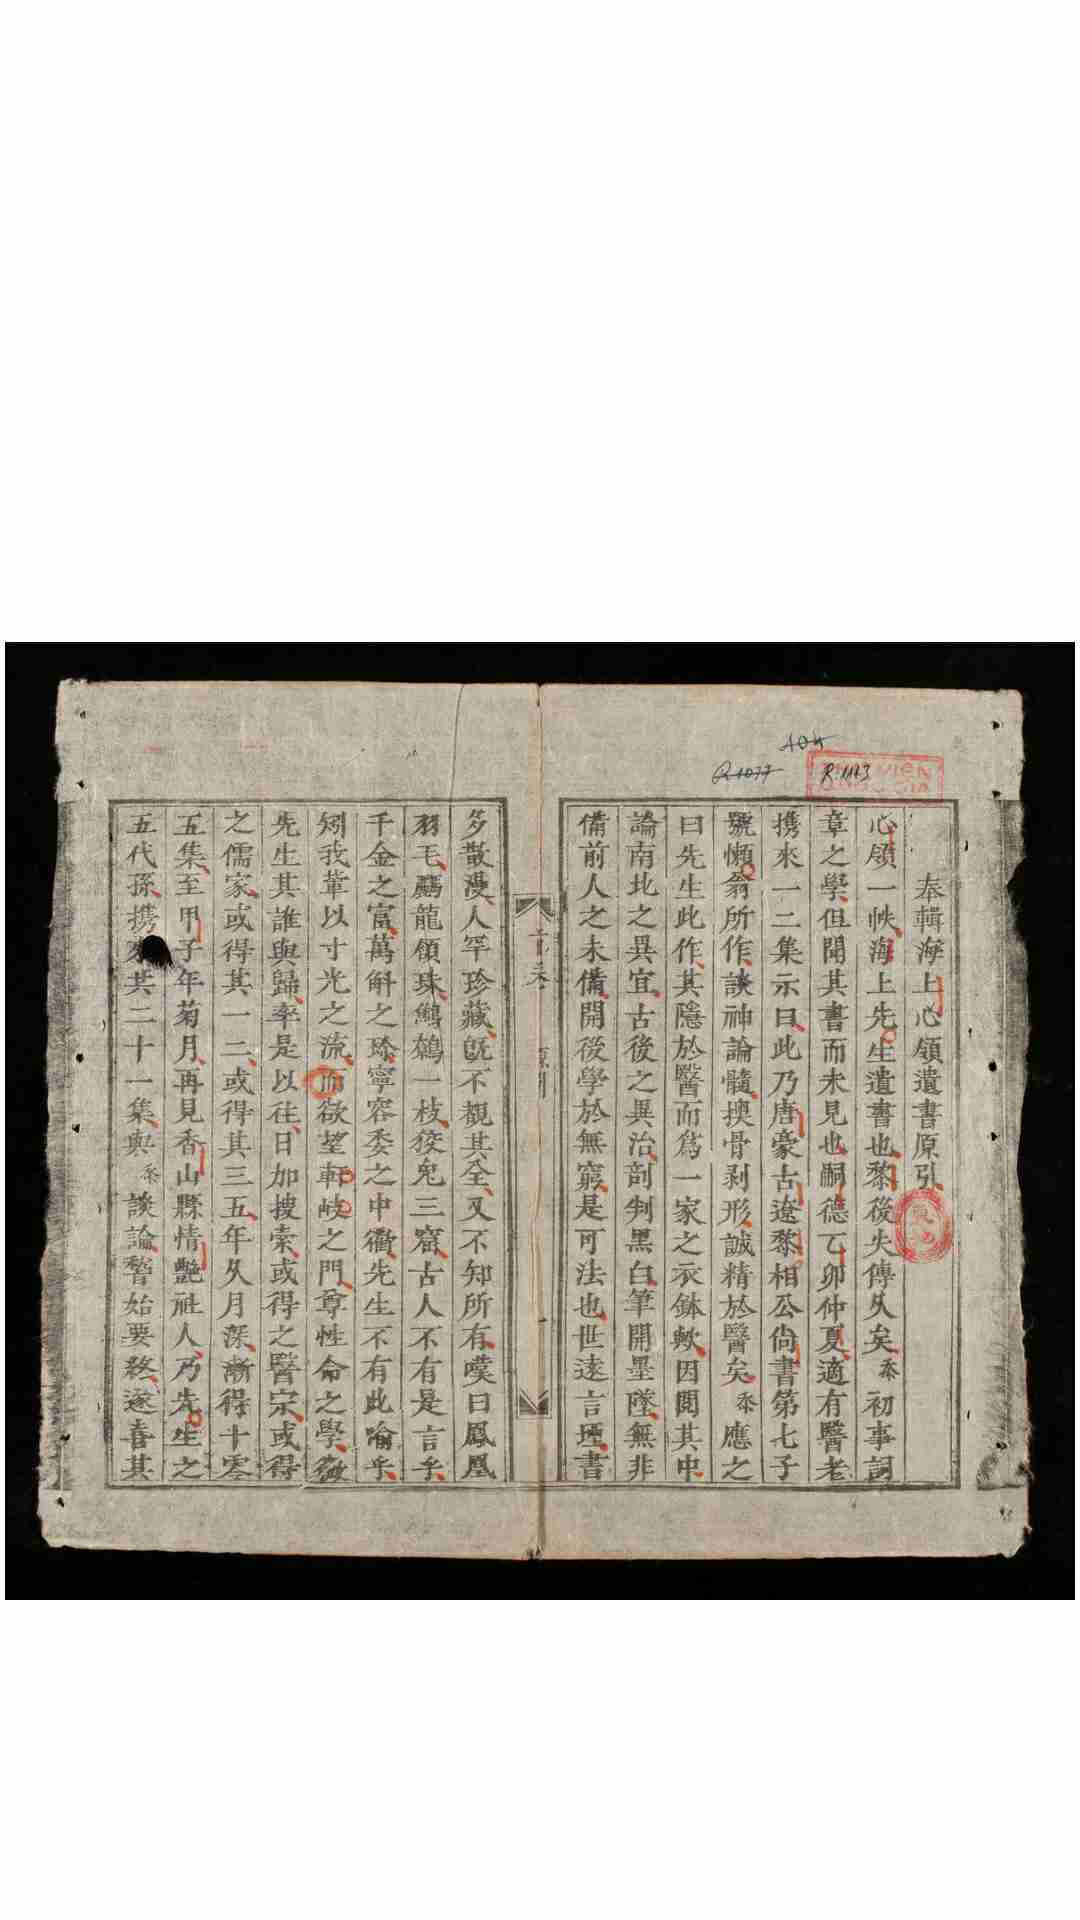 奉輯海上心領遺書原引
心領一帙海上先生遺書也黎後失傳久矣㤗初事詞
章之學但聞其書而未見也嗣德乙卯仲夏適有醫老
携來一二集示曰此乃唐豪古遼黎相公尙書第七子
號懶翁所作談神論髓換骨剥形誠精於醫矣㤗應之
曰先生此作其隱於醫而爲一家之衣鉢歟因閱其中
論南北之異宜古後之異治剖判黑白筆開墨墜無非
備前人之未備開後學於無窮是可法也世遠言堙書
首卷 原引 一
多散漫人罕珍藏旣不觀其全又不知所有嘆曰鳳凰
羽毛驪龍頷珠鷦鷯一枝狡兔三窟古人不有是言乎
千金之富萬斛之珎寧容委之中衢先生不有此喻乎
矧我輩以寸光之流而欲望軒岐之門尊性命之學微
先生其誰與歸率是以往日加搜索或得之醫宗或得
之儒家或得其一二或得其三五年久月深漸得十零
五集至甲子年菊月再見香山縣情艷社人乃先生之
五代孫携來其二十一集與㤗談論醫始要務遂喜其
404
R.1077
R.1173